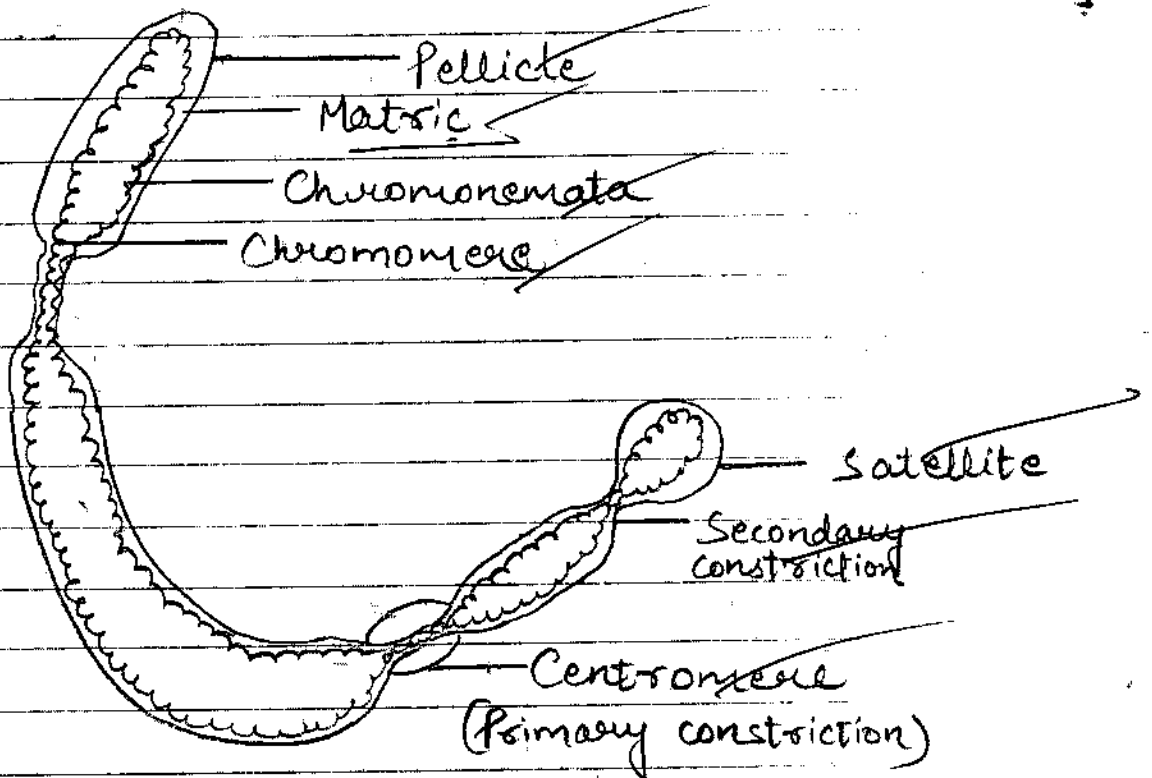 Pellicle
Matric
Chromonemata
Chromomere
Satellite
Secondary
constriction
Centromere
(Primary constriction)